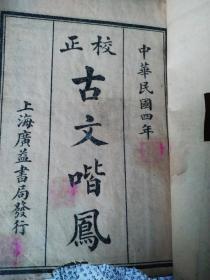 中華民國四年
校正
古文喈鳳
上海廣益書局發行